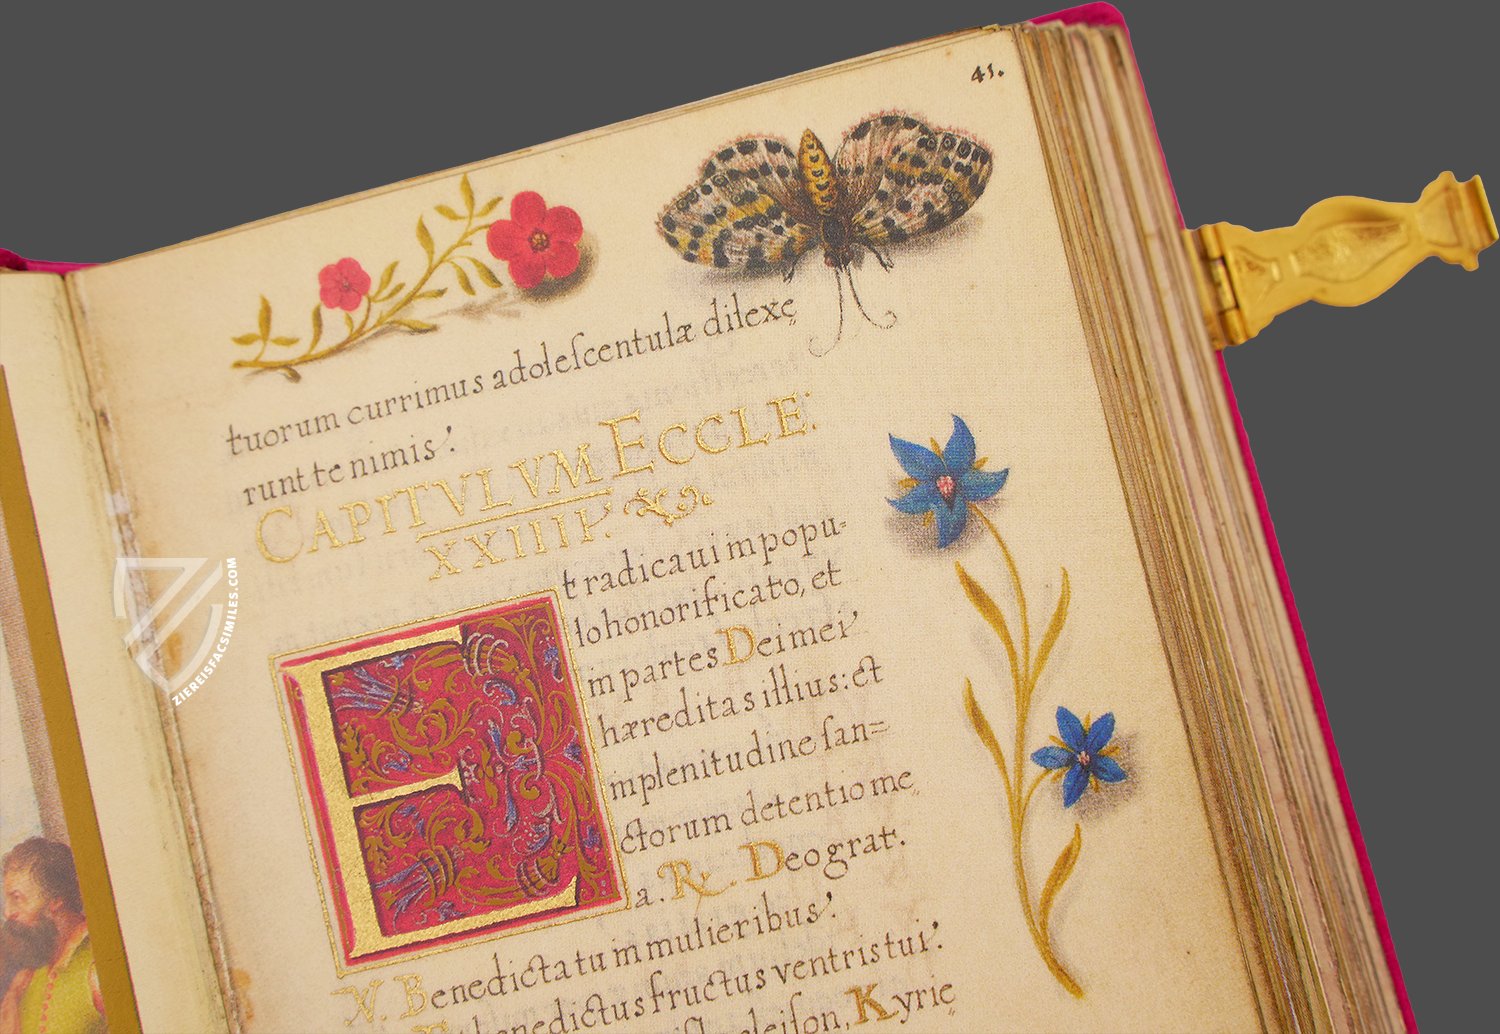 41.
tuorum currimus adoleſcentulæ dilexę
runt te nimis.
CAPITVLVM ECCLE:
XXIIII.
Et radicaui in popu-
lo honorificato, et
in partes Dei mei
hæreditas illius: et
in plenitudine ſan=
ctorum detentio me
a. ℟. Deo grat.
V. Benedicta tu in mulieribus.
Et benedictus fructus ventris tui.
eleiſon, Kyrie
ZIEREISFACSIMILES.COM